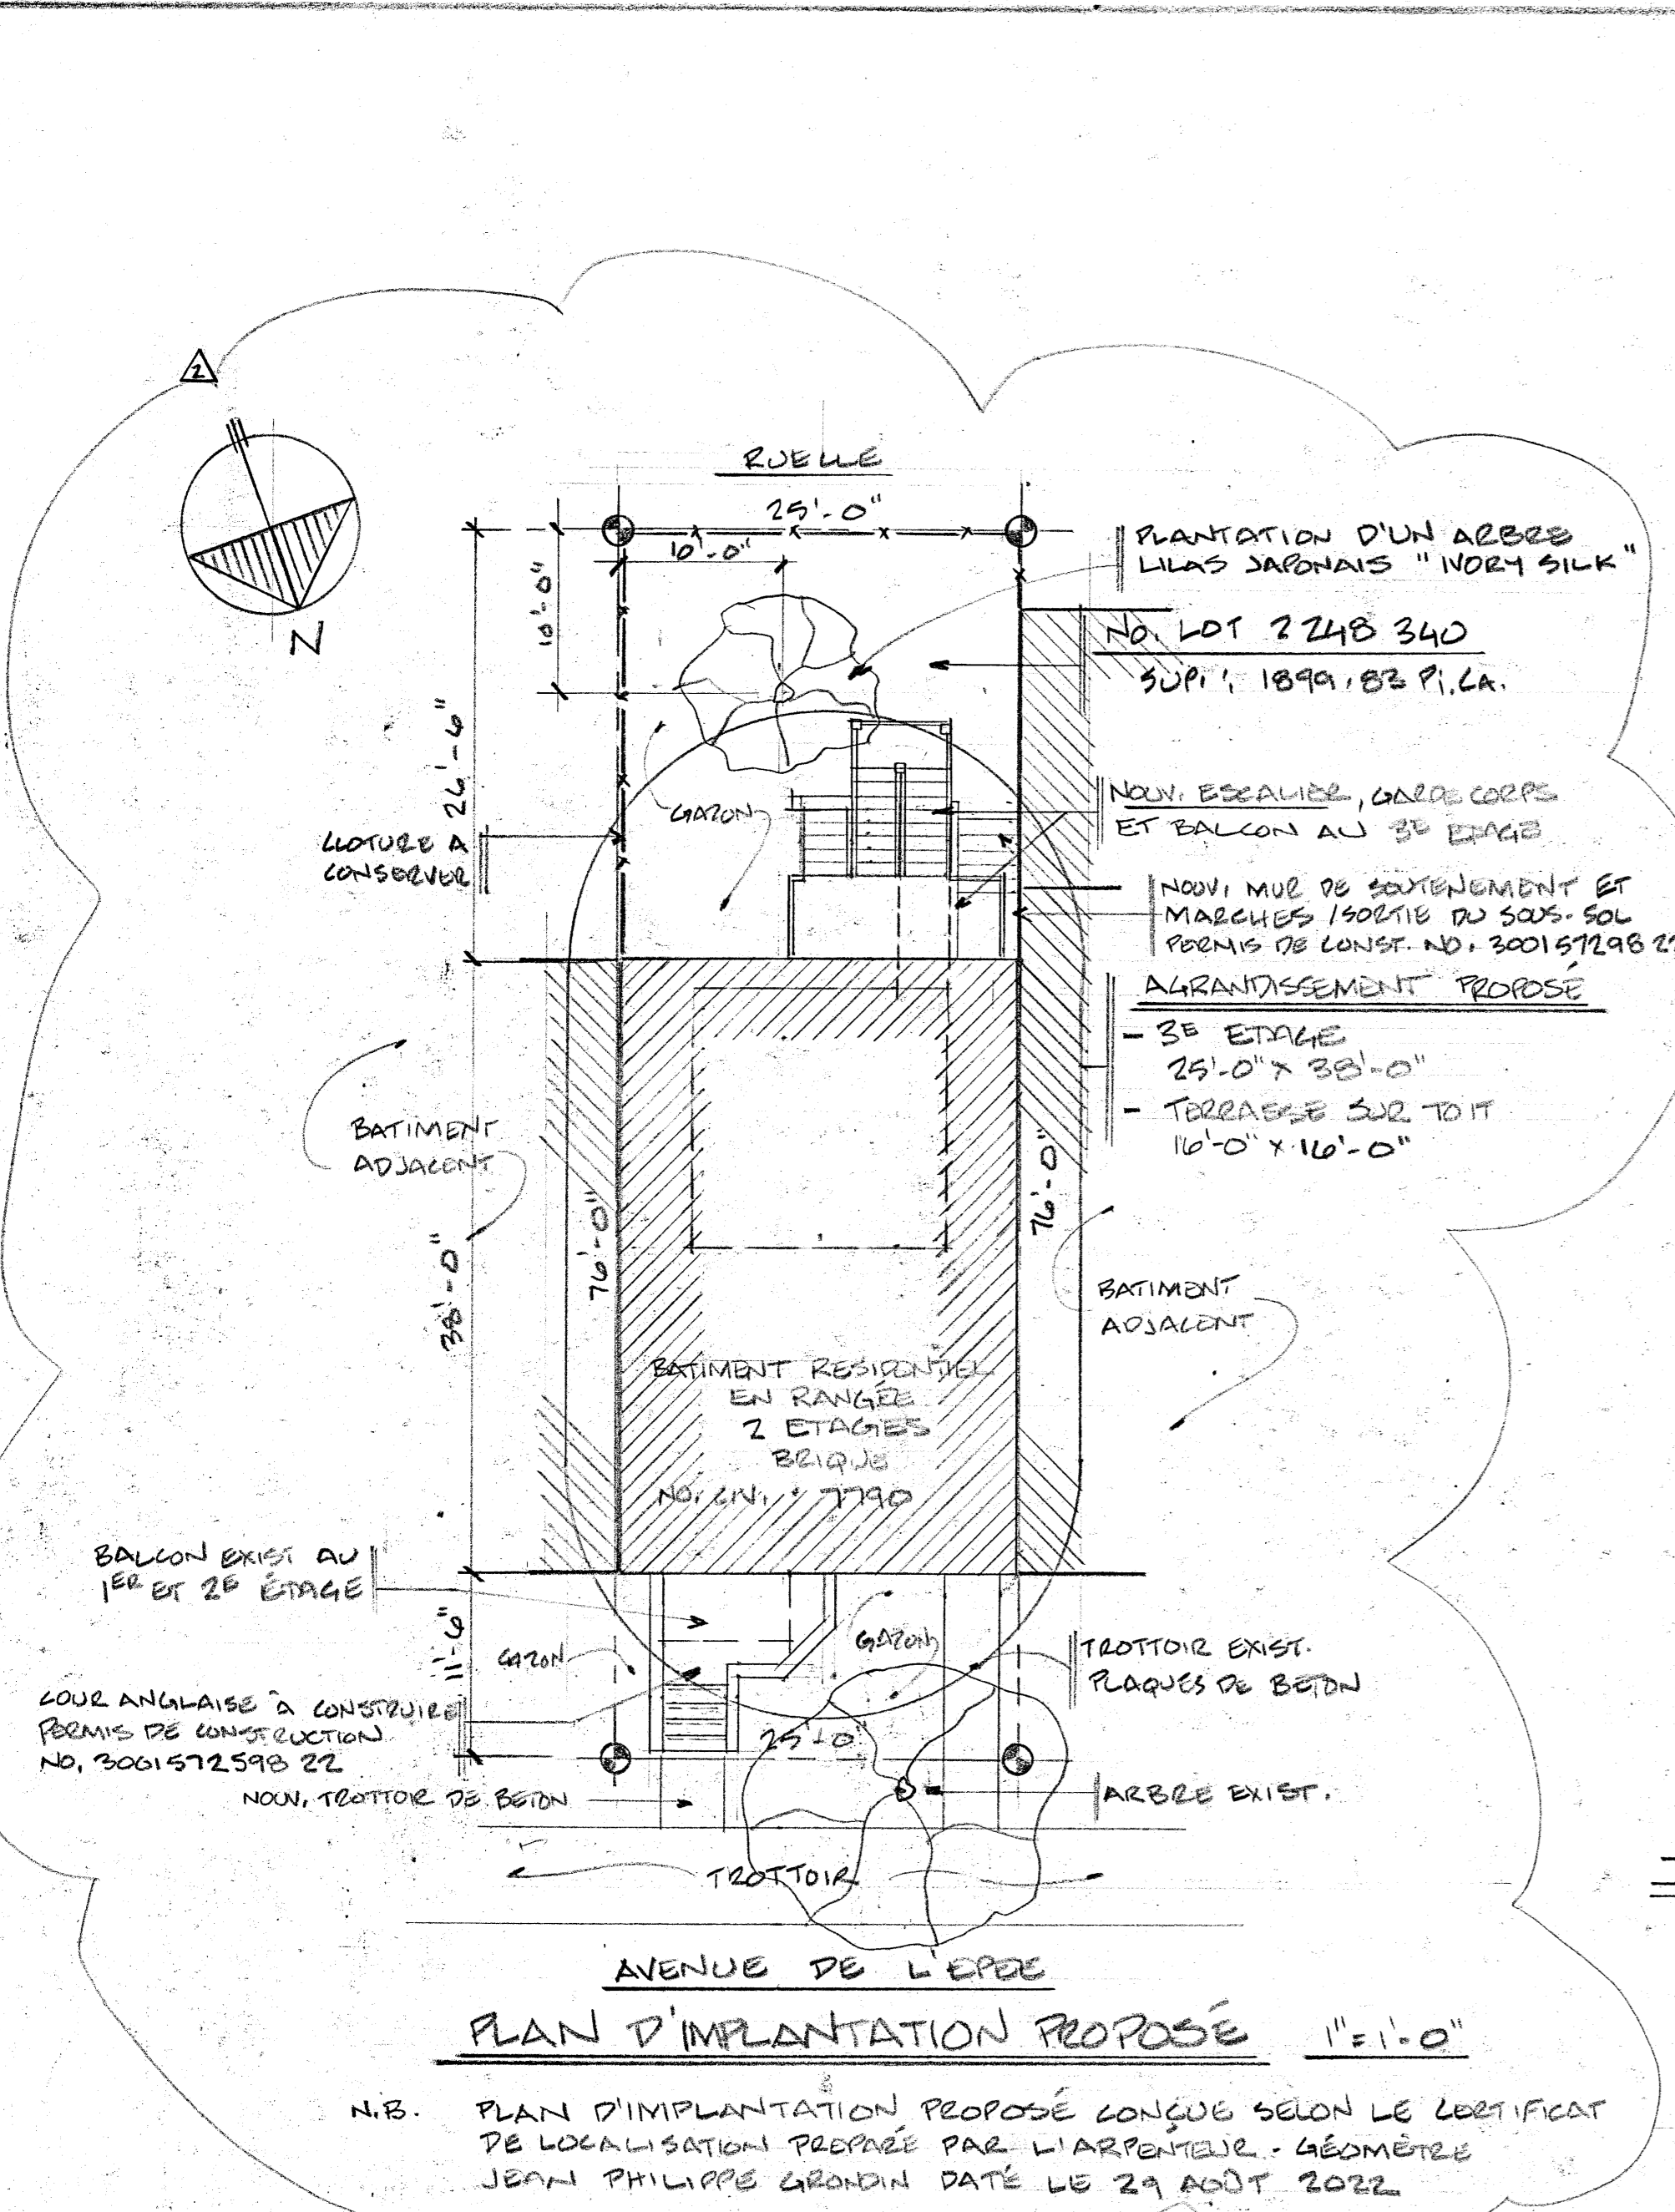 2
N
RUELLE
25'-0"
10'-0"
10'-0"
PLANTATION D'UN ARBRE
LILAS JAPONAIS "IVORY SILK"
NO. LOT 2 248 340
SUP. : 1899.83 Pi.CA.
26'-6"
GAZON
CLOTURE A
CONSERVER
NOUV. ESCALIER, GARDE CORPS
ET BALCON AU 3E ETAGE
NOUV. MUR DE SOUTENEMENT ET
MARCHES / SORTIE DU SOUS-SOL
PERMIS DE CONST. NO. 300157298 22
AGRANDISSEMENT PROPOSÉ
- 3E ETAGE
25'-0" x 38'-0"
- TERRASSE SUR TOIT
16'-0" x 16'-0"
BATIMENT
ADJACENT
76'-0"
76'-0"
38'-0"
BATIMENT
ADJACENT
BATIMENT RESIDENTIEL
EN RANGÉE
2 ETAGES
BRIQUE
NO. CIV. : 7790
BALCON EXIST AU
1ER ET 2E ÉTAGE
11'-6"
GAZON
GAZON
TROTTOIR EXIST.
PLAQUES DE BETON
COUR ANGLAISE À CONSTRUIRE
PERMIS DE CONSTRUCTION
NO. 3001572598 22
25'-0"
NOUV. TROTTOIR DE BETON
ARBRE EXIST.
TROTTOIR
AVENUE DE L'EPEE
PLAN D'IMPLANTATION PROPOSÉ 1"=1'-0"
N.B. PLAN D'IMPLANTATION PROPOSÉ CONÇUE SELON LE CERTIFICAT
DE LOCALISATION PREPARÉ PAR L'ARPENTEUR-GÉOMÈTRE
JEAN PHILIPPE GRONDIN DATÉ LE 29 AOÛT 2022